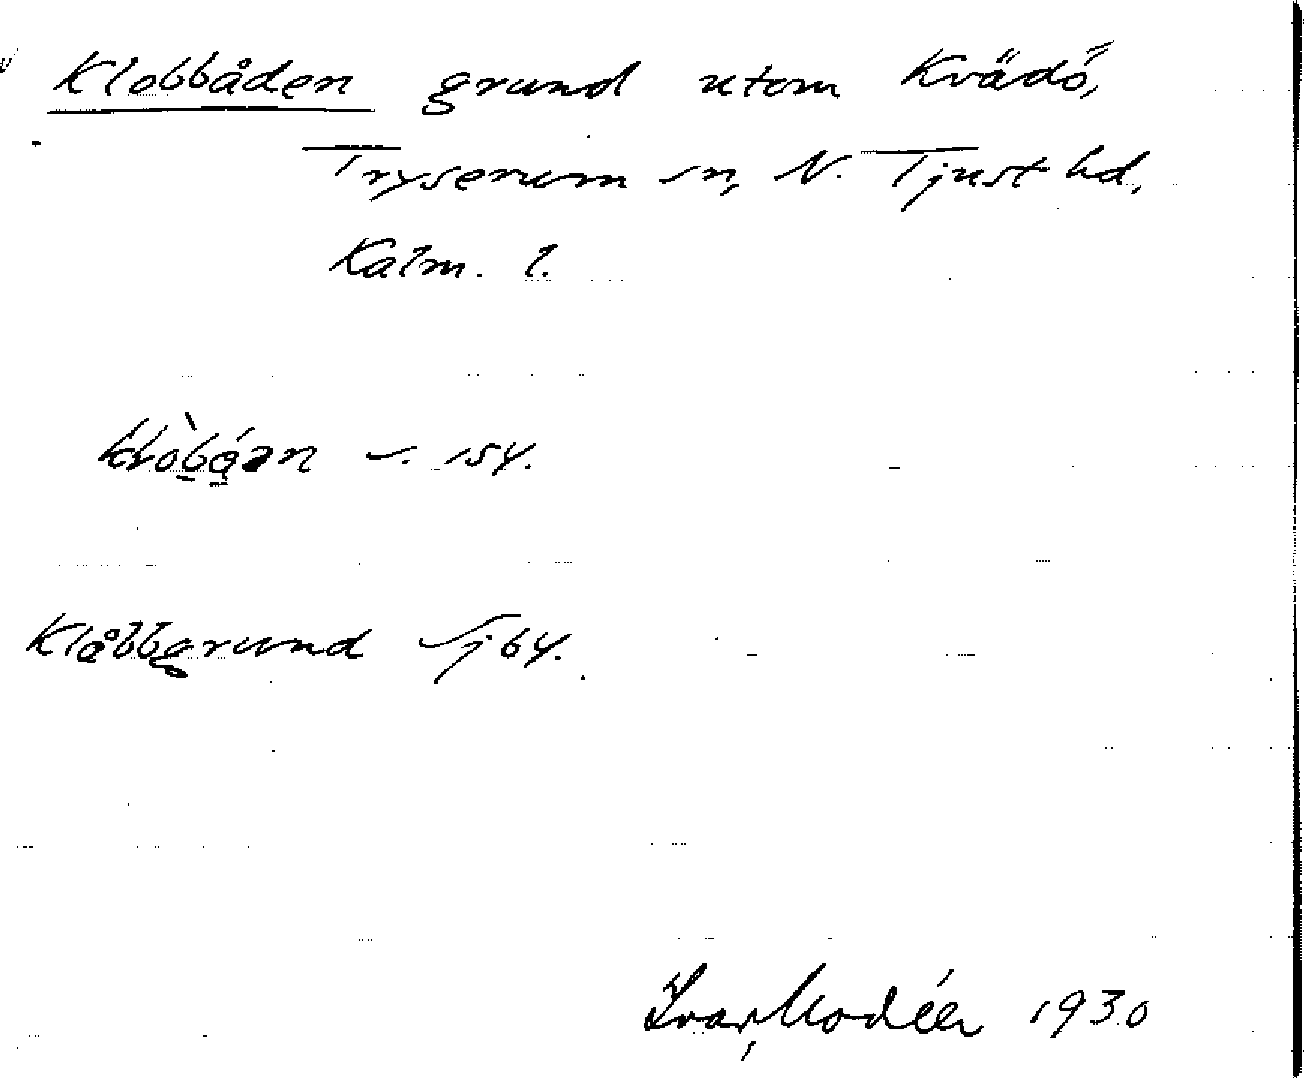 Klobbåden grund utom Kvädö,
Tryserum sn, N. Tjust hd,
Kalm. l.
154.
Klåbbgrund Sj 64.
Ivar Modéer 1930